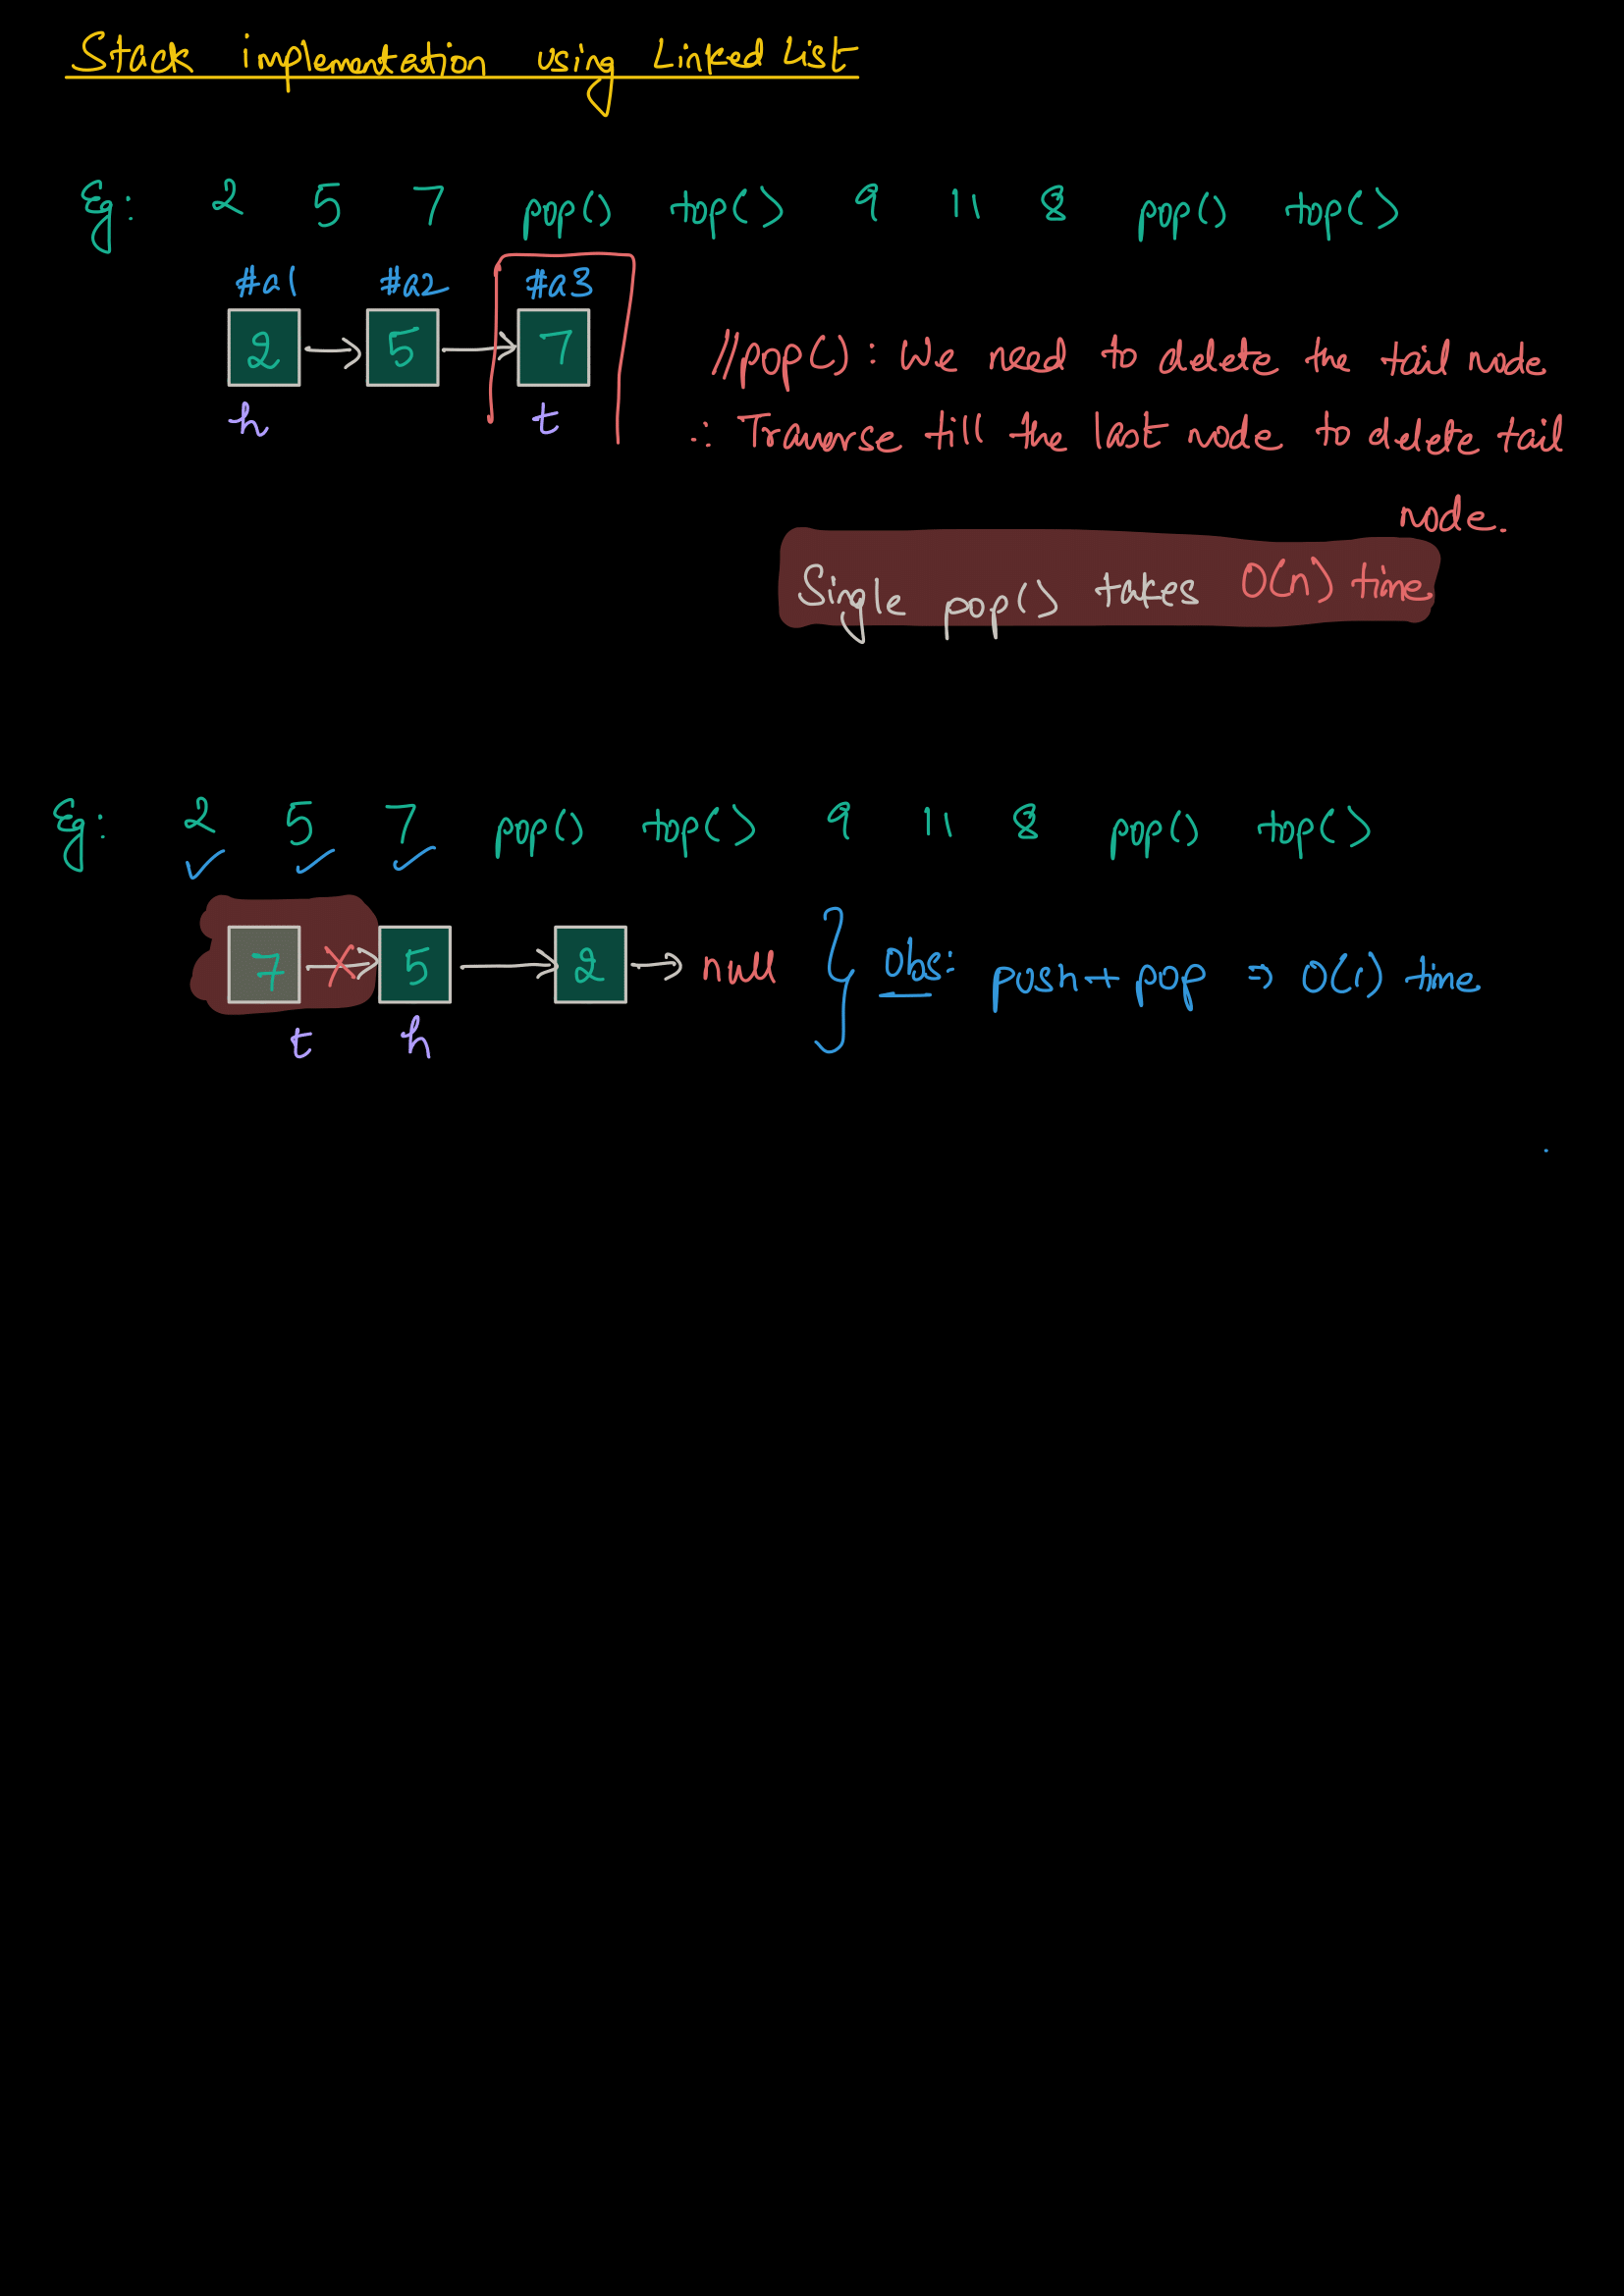 Stack implementation using Linked List
Eg: 2 5 7 pop() top() 9 11 8 pop() top()
#a1 #a2 #a3
2 → 5 → 7
h t
//pop() : We need to delete the tail node
∴ Traverse till the last node to delete tail
node.
Single pop() takes O(n) time
Eg: 2 5 7 pop() top() 9 11 8 pop() top()
7 → 5 → 2 → null } Obs: push + pop ⇒ O(1) time
t h